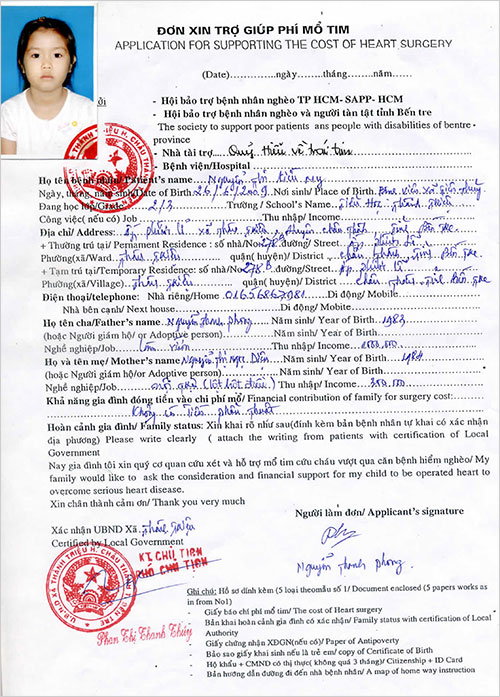 ĐƠN XIN TRỢ GIÚP PHÍ MỔ TIM
APPLICATION FOR SUPPORTING THE COST OF HEART SURGERY
(Date)..............ngày........tháng........năm......
- Hội bảo trợ bệnh nhân nghèo TP HCM- SAPP- HCM
- Hội bảo trợ bệnh nhân nghèo và người tàn tật tỉnh Bến tre
The society to support poor patients ans people with disabilities of bentre province
- Nhà tài trợ
- Bệnh viện/Hospital
Họ tên bệnh nhân/ Patient's name Nguyễn thị kiều my
Ngày, tháng, năm sinh/Date of Birth 26/6/2009 Nơi sinh/ Place of Birth
Đang học lớp/Grade 2/3 Trường / School's Name Tiểu Học thành triệu
Công việc( nếu có) Job Thu nhập/ Income
Địa chỉ/ Address: xã thành triệu Huyện châu thành Bến Tre
+ Thường trú tại/ Permanent Residence: số nhà/No đường/Street
Phường(xã/Ward thành triệu quận( huyện)/ District châu thành Bến Tre
+ Tạm trú tại/Temporary Residence: số nhà/No đường/ Street
Phường(xã/Village) thành triệu quận( huyện)/ District châu thành Bến Tre
Điện thoại/telephone: Nhà riêng/Home Di động/ Mobile
Nhà bên cạnh/ Next house Di động/ Mobile
Họ tên cha/Father's name Nguyễn thanh phong Năm sinh/ Year of Birth 1983
(hoặc Người giám hộ/ or Adoptive person) Năm sinh/ Year of Birth
Nghề nghiệp/Job làm Thu nhập/ Income
Họ và tên mẹ/ Mother's name Nguyễn thị ngọc Năm sinh/ Year of Birth 1984
(hoặc Người giám hộ/ or Adoptive person) Năm sinh/ Year of Birth
Nghề nghiệp/Job Thu nhập/ Income
Khả năng gia đình đóng tiền vào chi phí mổ/ Financial contribution of family for surgery cost:
Không có tiền phẩu thuật
Hoàn cảnh gia đình/ Family status: Xin khai rõ như sau(đính kèm bản bệnh nhân tự khai có xác nhận
địa phương) Please write clearly ( attach the writing from patients with certification of Local
Government
Nay gia đình tôi xin quý cơ quan cứu xét và hỗ trợ mổ tim cứu cháu vượt qua căn bệnh hiểm nghèo/ My
family would like to ask the consideration and financial support for my child to be operated heart to
overcome serious heart disease.
Xin chân thành cảm ơn/ Thank you very much
Người làm đơn/ Applicant's signature
Xác nhận UBND Xã thành triệu
Certified by Local Government
KT. CHỦ TỊCH
PHÓ CHỦ TỊCH
Nguyễn thanh phong
Phan Thị Thanh Thúy
Ghi chú: Hồ sơ đính kèm (5 loại theomẫu số 1/ Document enclosed (5 papers works as
in from No1)
- Giấy báo chi phí mổ tim/ The cost of Heart surgery
- Bản khai hoàn cảnh gia đình có xác nhận/ Family status with certification of Local
Authority
- Giấy chứng nhận XĐGN(nếu có)/ Paper of Antipoverty
- Bảo sao giấy khai sinh nếu là trẻ em/ copy of Certificate of Birth
- Hộ khẩu + CMND có thị thực( không quá 3 tháng)/ Citizenship + ID Card
- Bản hướng dẫn đường đi đến nhà/ A map of home way instruction